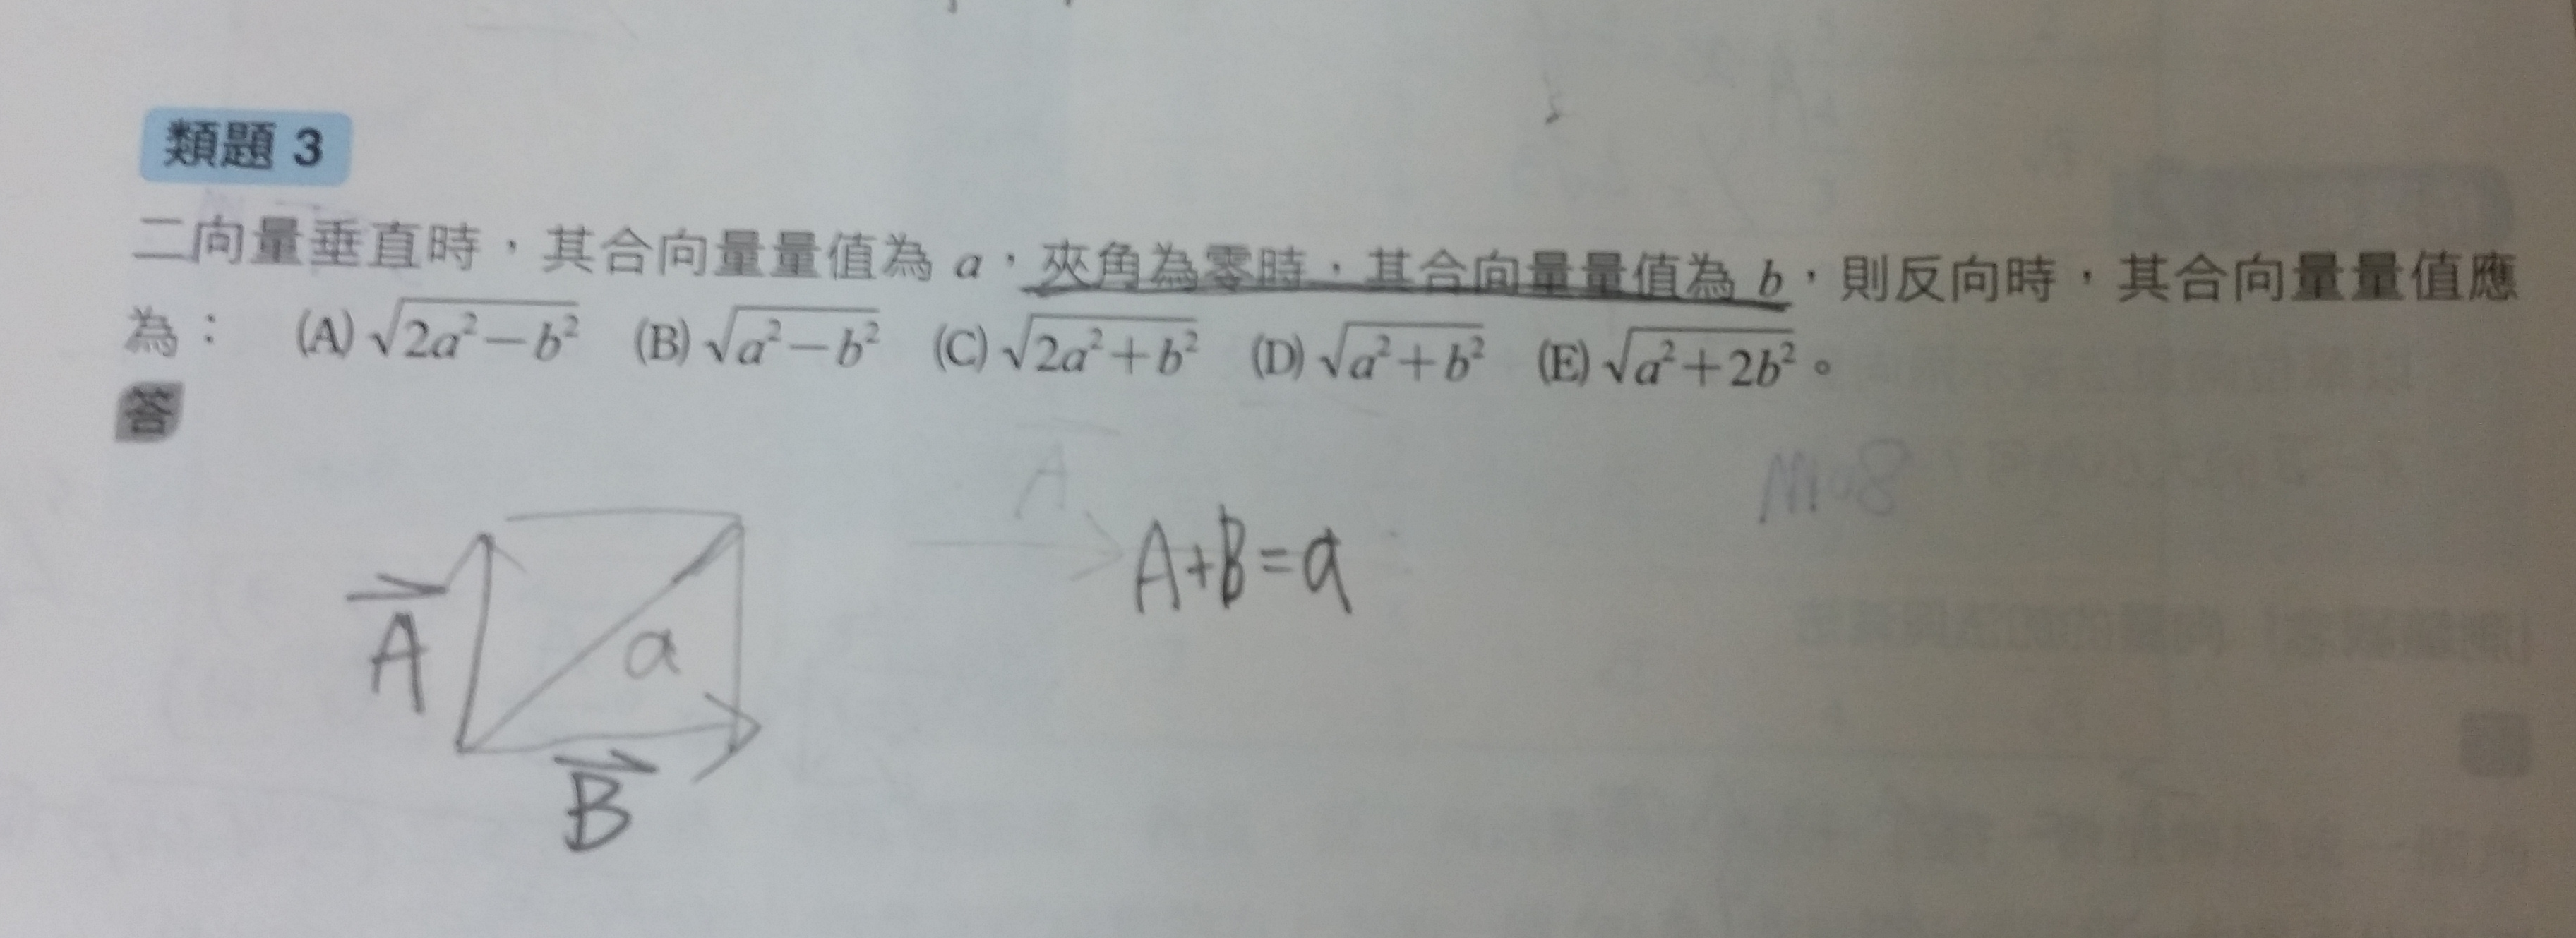 類題 3
二向量垂直時，其合向量量值為 a，夾角為零時，其合向量量值為 b，則反向時，其合向量量值應
為： (A)√2a²－b² (B)√a²－b² (C)√2a²＋b² (D)√a²＋b² (E)√a²＋2b²。
答
A
A+B=a
A
a
B